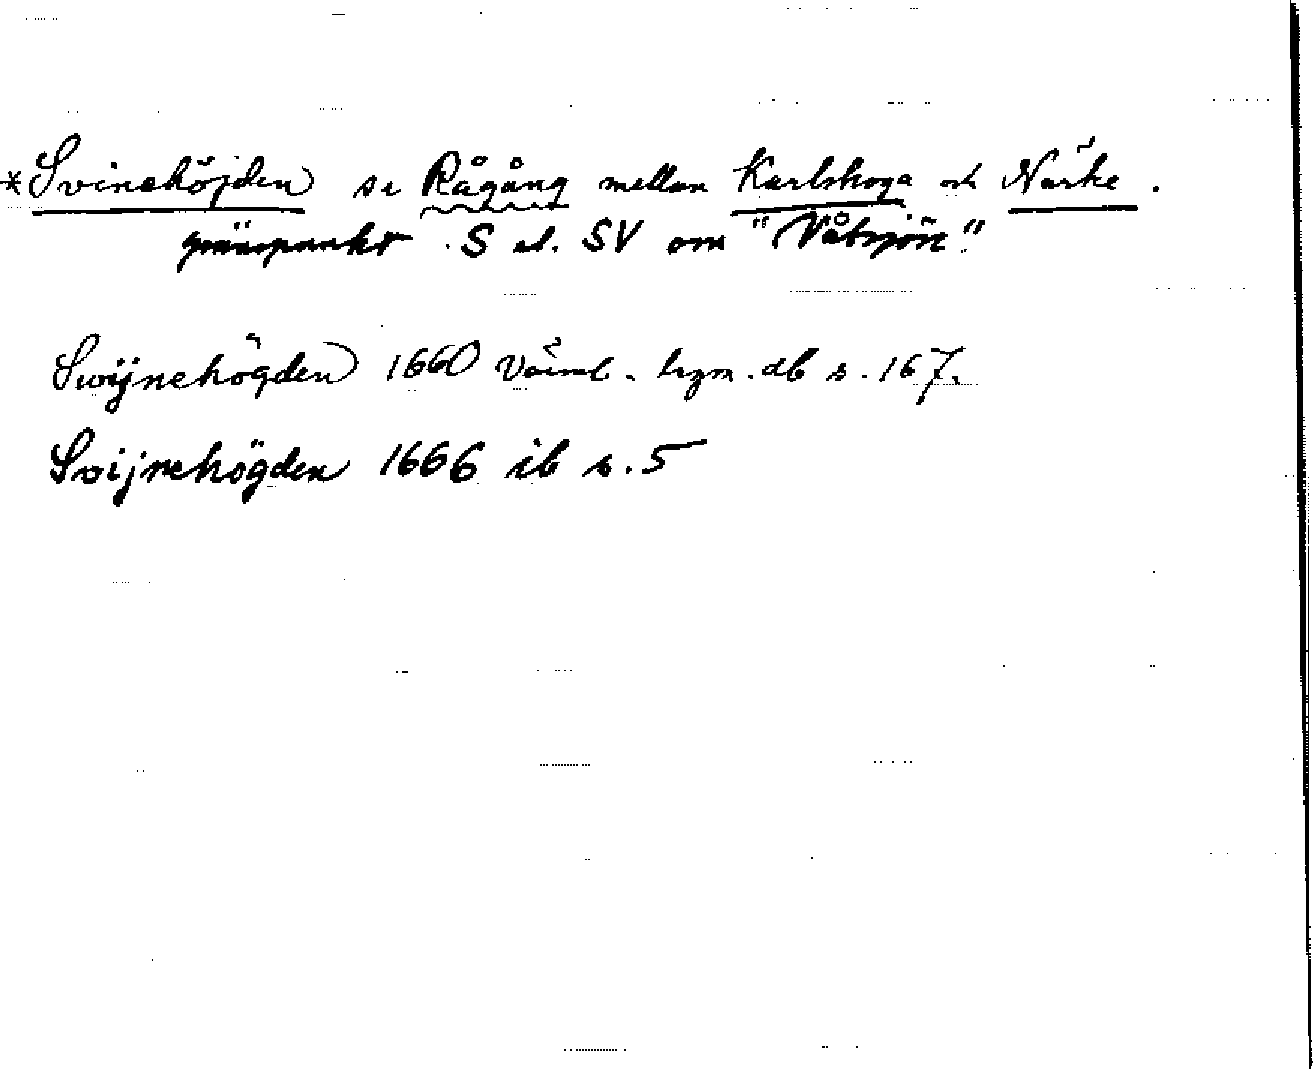 *Svinehöjden se Rågång mellan Karlskoga och Närke.
gränspunkt S el. SV om "Våtsjön".
Swijnehögden 1660 Värml. hrgm. db s. 167.
Svijnehögden 1666 ib s. 5